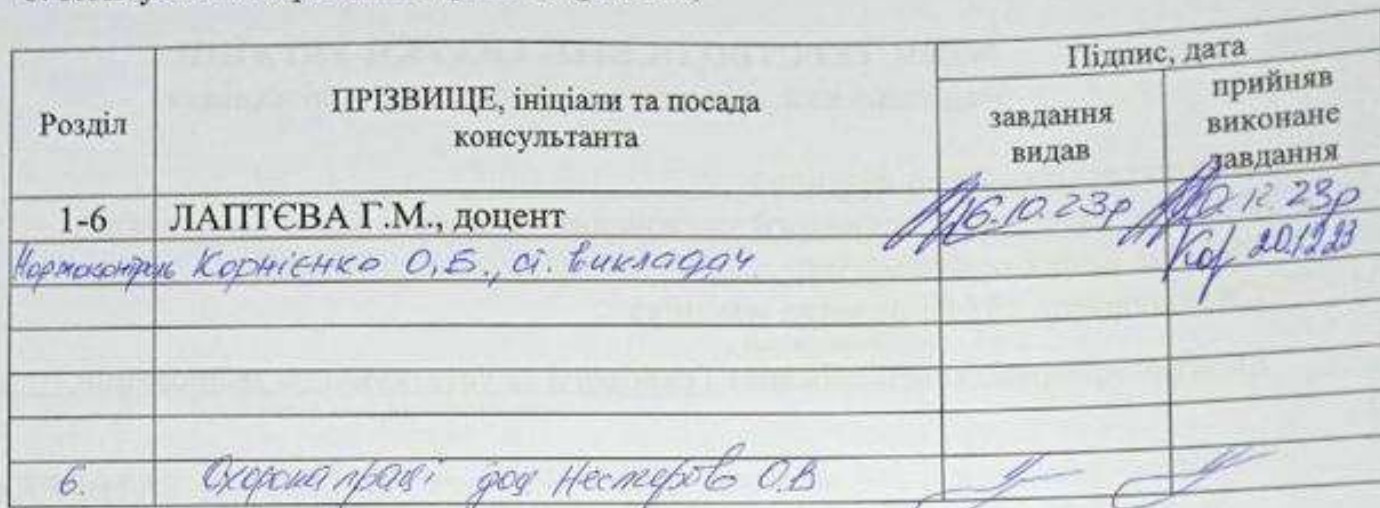 Підпис, дата
Розділ
ПРІЗВИЩЕ, ініціали та посада
консультанта
завдання
видав
прийняв
виконане
завдання
1-6 ЛАПТЄВА Г.М., доцент 16.10.23р 20.12.23р
Нормоконтроль Корнієнко О.Б., ст. викладач 20.12.23
6. Охорона праці доц Нестеров О.В